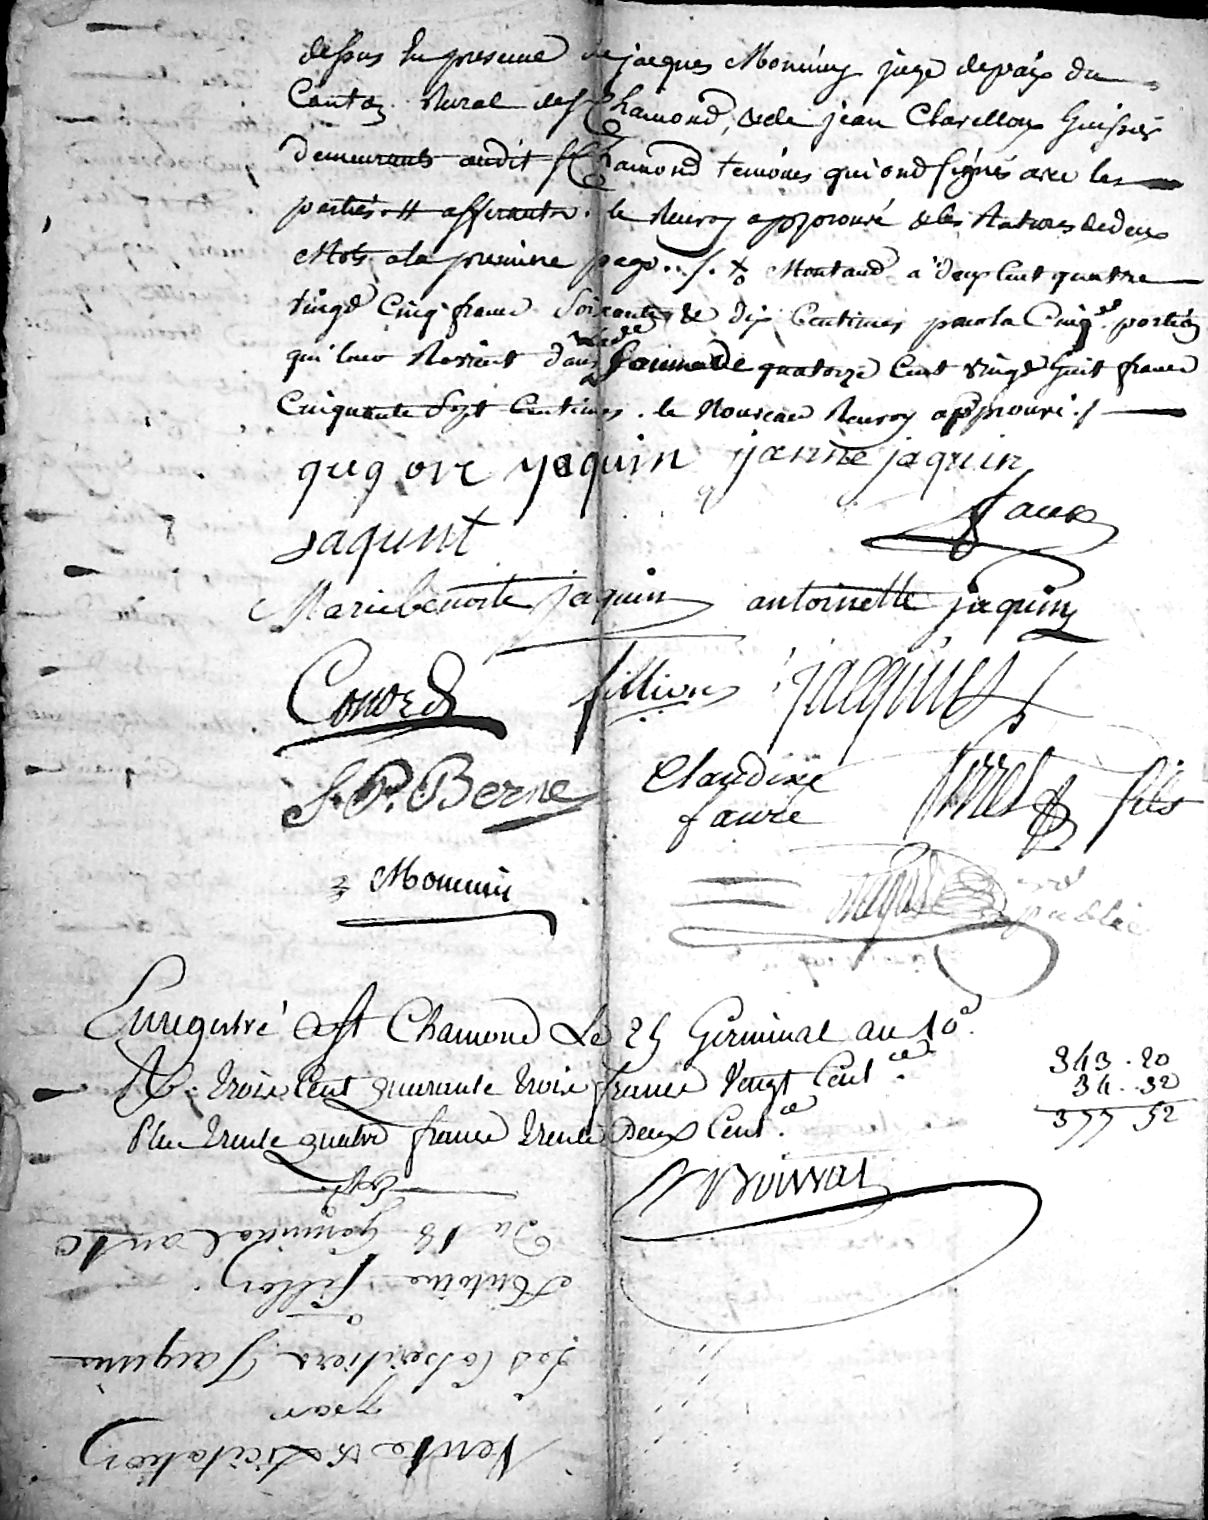 dessus En presence de jacques Monniny juge depaix du
Canton Rural de St Chamond, & de jean Clarelloux huissier
demeurants audit St Chamond temoins qui ond signés avec les
parties. # afferante. le Renvoy approuvé & les Ratures de deux
Mots a la premiere page ../. Montand a deux Cent quatre
vingd Cinq francs Soixante & dix Centimes pour la Cinq.e portion
qui leur Revient dans somme de quatorze Cent vingd huit francs
Cinquante Sept Centimes. le Nouveau Renvoy approuvé ./
gregore yaquin yanne jaquin
jaquint faux
Marie benoite jaquin antoinette jaquin
Couord fillion jacquin
J. P. Berne Claudine faure Terret fils
Monnin
public
Enregistré a St Chamond Le 25 Germinal an 10.e
R. trois Cent quarante trois francs vingt Cent.es
Plus trente quatre francs trente Deux Cent.es
343 . 20
34 . 32
377 52
Boissat
Vente & Licitation
par
Les Cohéritiers Jaquin
a
Antoine fillon
Du 18 Germinal an 10
Exp.